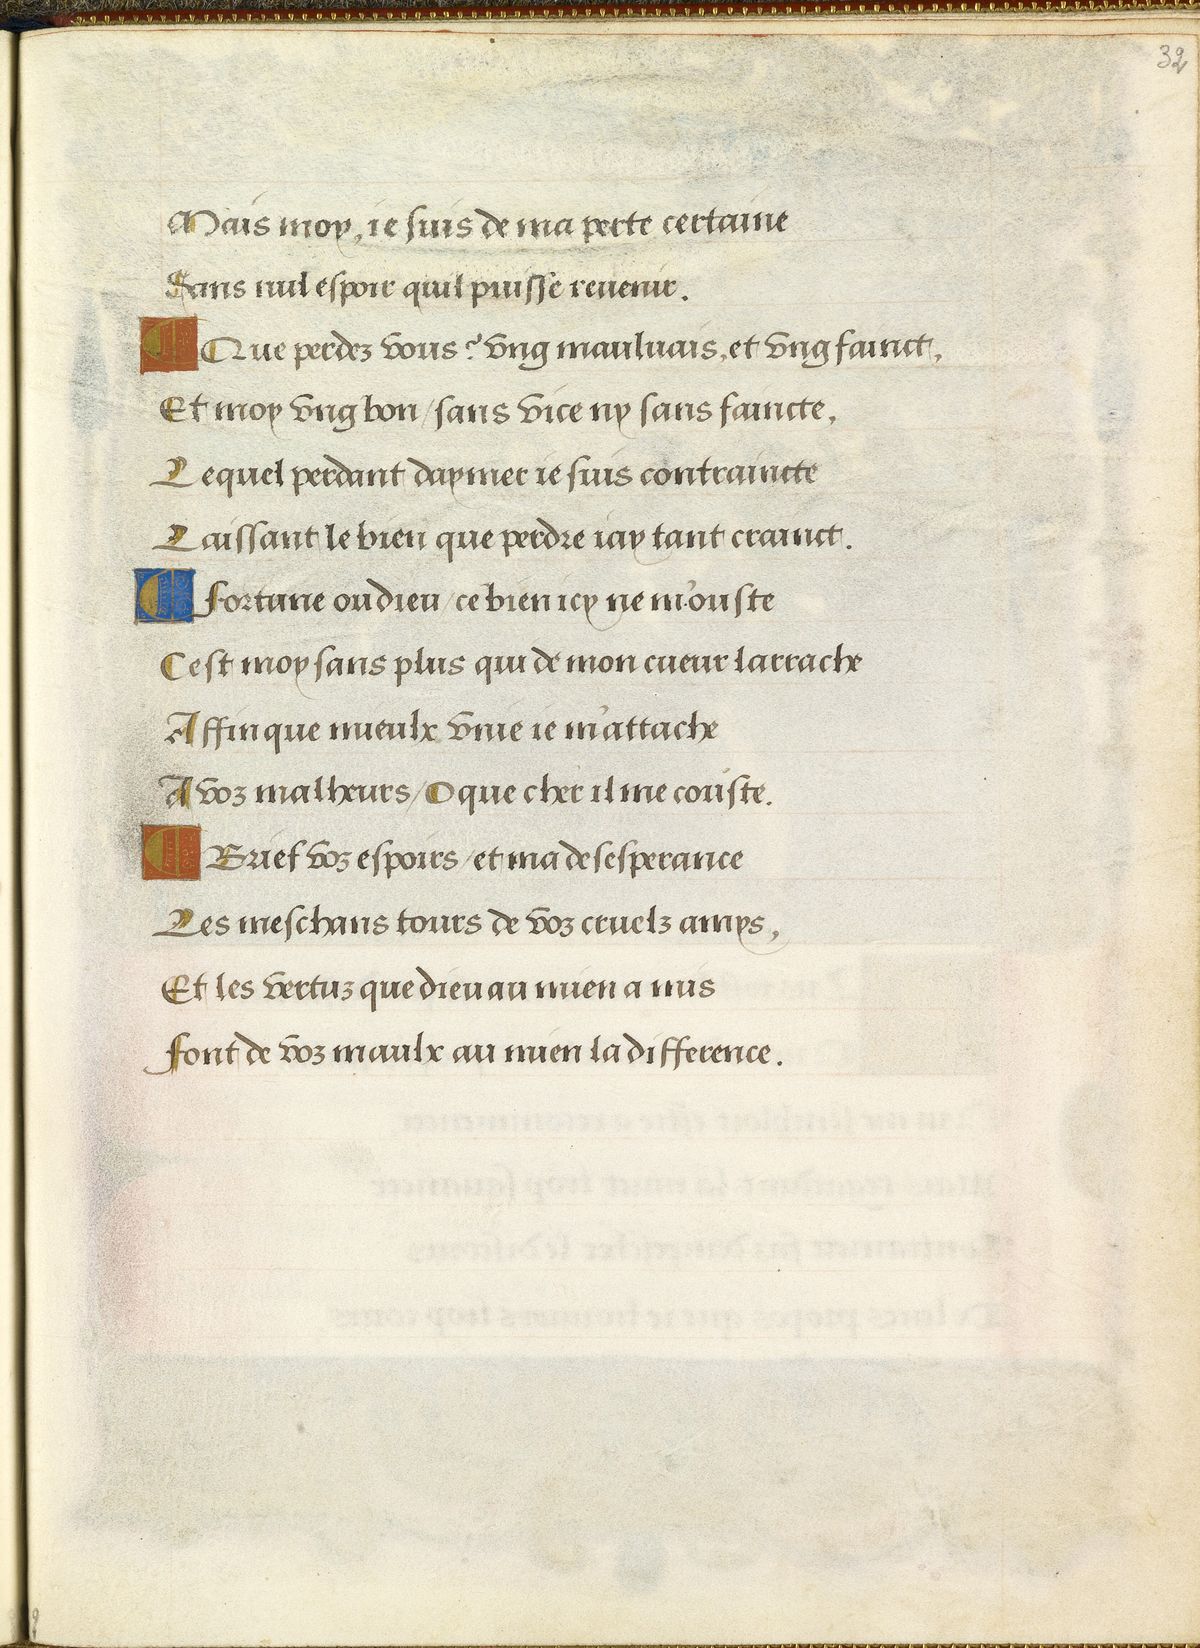 32
Mais moy, ie suis de ma perte certaine
Sans nul espoir quil puisse reuenir.
Que perdez vous? vng mauluais, et vng fainct,
Et moy vng bon / sans vice ny sans faincte,
Lequel perdant daymer ie suis contraincte
Laissant le bien que perdre iay tant crainct.
fortune ou dieu / ce bien icy ne m'ouste
Cest moy sans plus qui de mon cueur larrache
Affin que mieulx vnie ie m'attache
A voz malheurs / O que cher il me couste.
Brief voz espoirs / et ma desesperance
Les meschans tours de voz cruelz amys,
Et les vertuz que dieu au mien a mis
font de voz maulx au mien la difference.